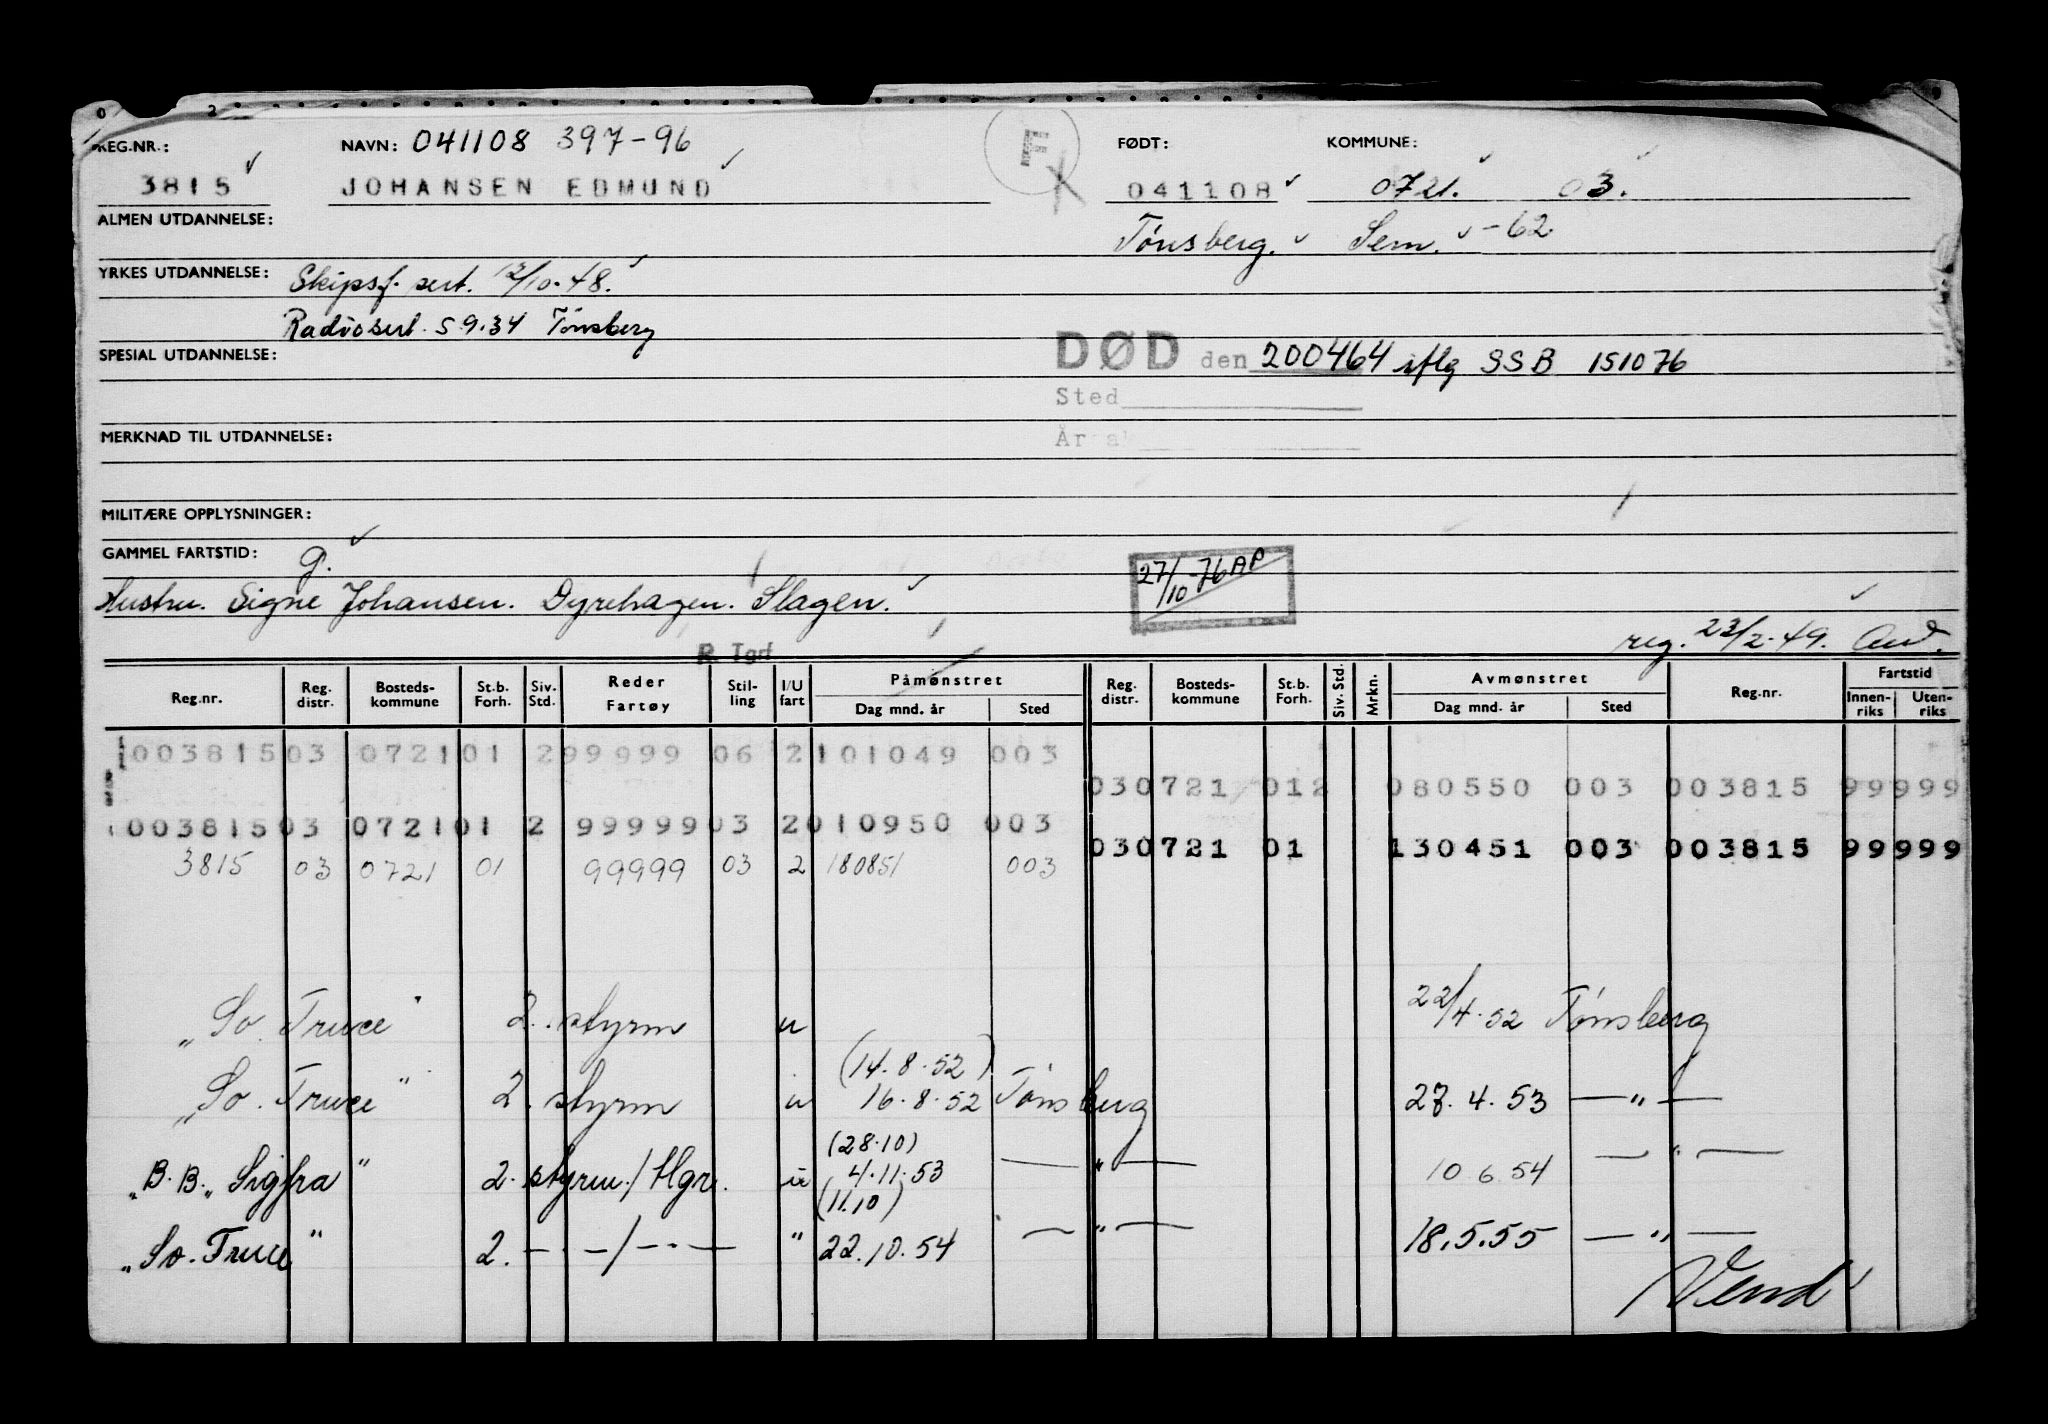 REG.NR.: NAVN: 041108 397-96 F FØDT: KOMMUNE:
3815 JOHANSEN EDMUND 041108 0721. 03.
ALMEN UTDANNELSE: Tønsberg. Sem. -62
YRKES UTDANNELSE: Skipsf. sert. 12/10-48.
Radiosert. 5 9.34 Tønsberg
SPESIAL UTDANNELSE: DØD den 200464 iflg SSB 151076
Sted
MERKNAD TIL UTDANNELSE: År
MILITÆRE OPPLYSNINGER:
GAMMEL FARTSTID: g.
27/10-76 AP
Hustru. Signe Johansen. Dyrehagen. Slagen.
reg. 23/2-49.
R Tgrf
Reg.nr. Reg. distr. Bosteds-kommune St.b. Forh. Siv. Std. Reder Fartøy Stil-ling I/U fart Påmønstret Dag mnd. år Sted Reg. distr. Bosteds-kommune St.b. Forh. Siv. Std. Mrkn. Avmønstret Dag mnd. år Sted Reg.nr. Fartstid Innen-riks Uten-riks
003815 03 0721 01 2 99999 06 2 101049 003
03 0721 01 2 080550 003 003815 99 999
003815 03 0721 01 2 99999 03 2 010950 003
03 0721 01 130451 003 003815 99 999
3815 03 0721 01 99999 03 2 180851 003
"So. Truce" 2. styrm u 22/4.52 Tønsberg
(14.8.52)
"So. Truce" 2. styrm u 16.8.52 Tønsberg 27.4.53 — " —
(28.10)
"B.B. "Sigfra" 2. styrm./Hgr. u 4.11.53 — " — 10 6 54 — " —
(11.10)
"So. Truce" 2. — " — / — " — " 22.10.54 — " — 18.5.55 — " —
Vend